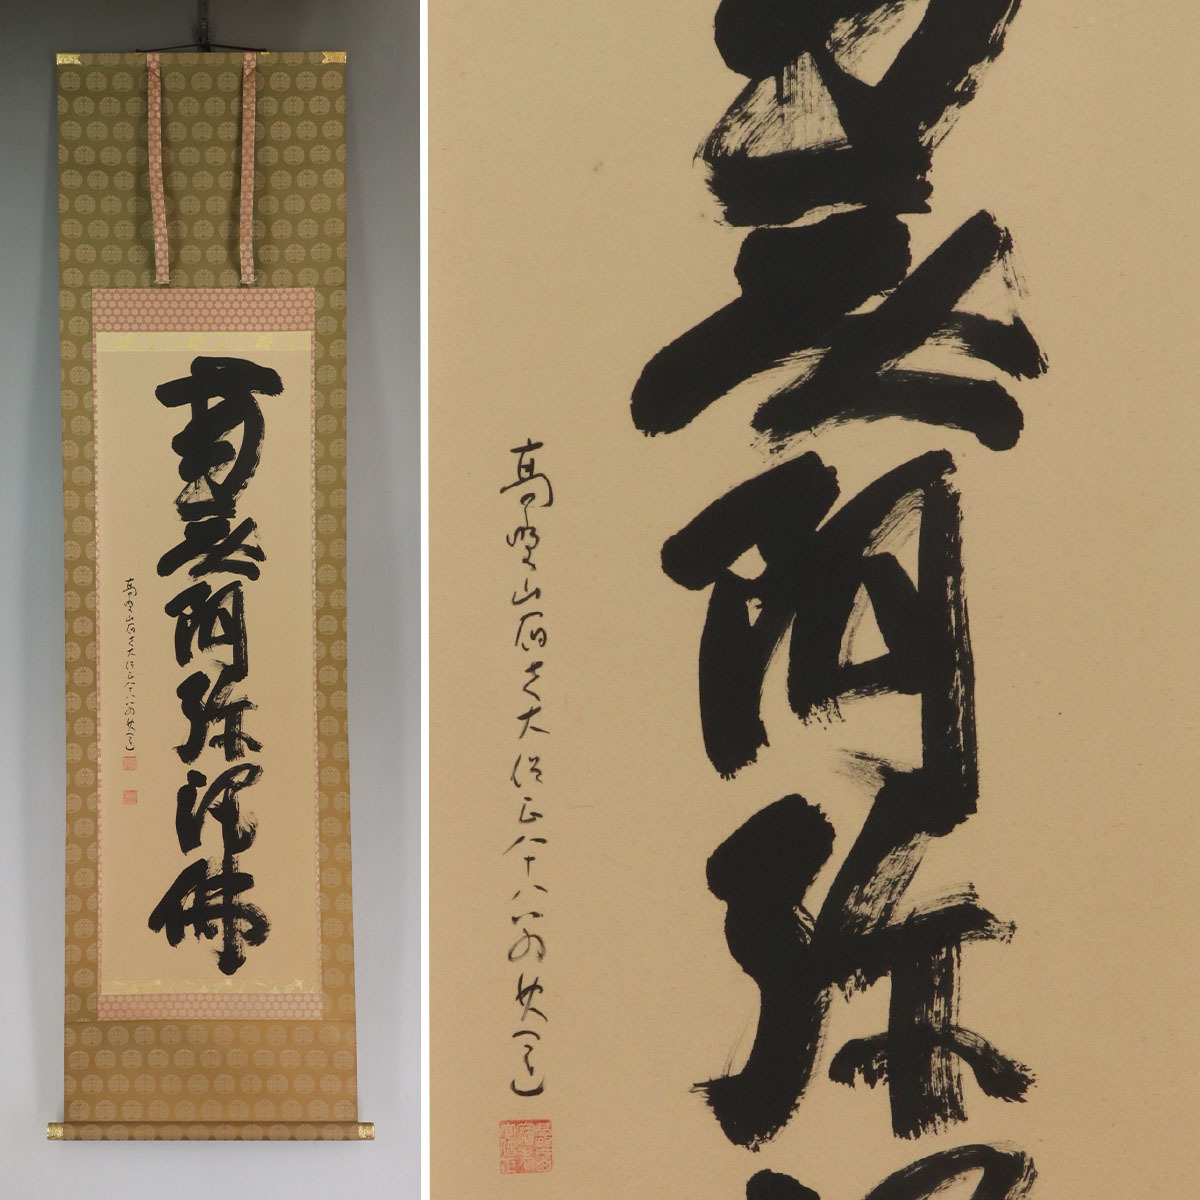 南無阿弥陀佛
高野山宿老大僧正八十八翁